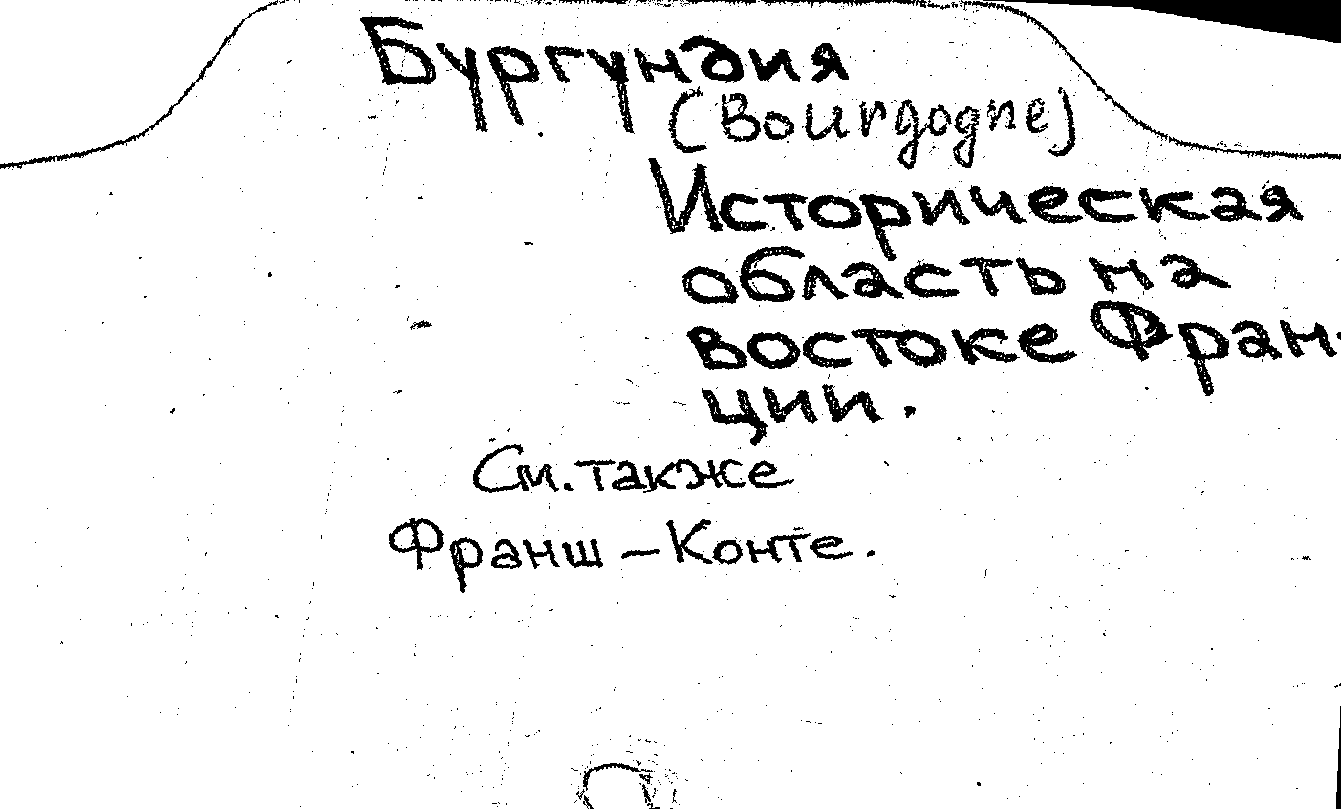 Бургундия
(Bourgogne)
Историческая
область на
востоке Фран-
ции.
См. также
Франш-Конте.